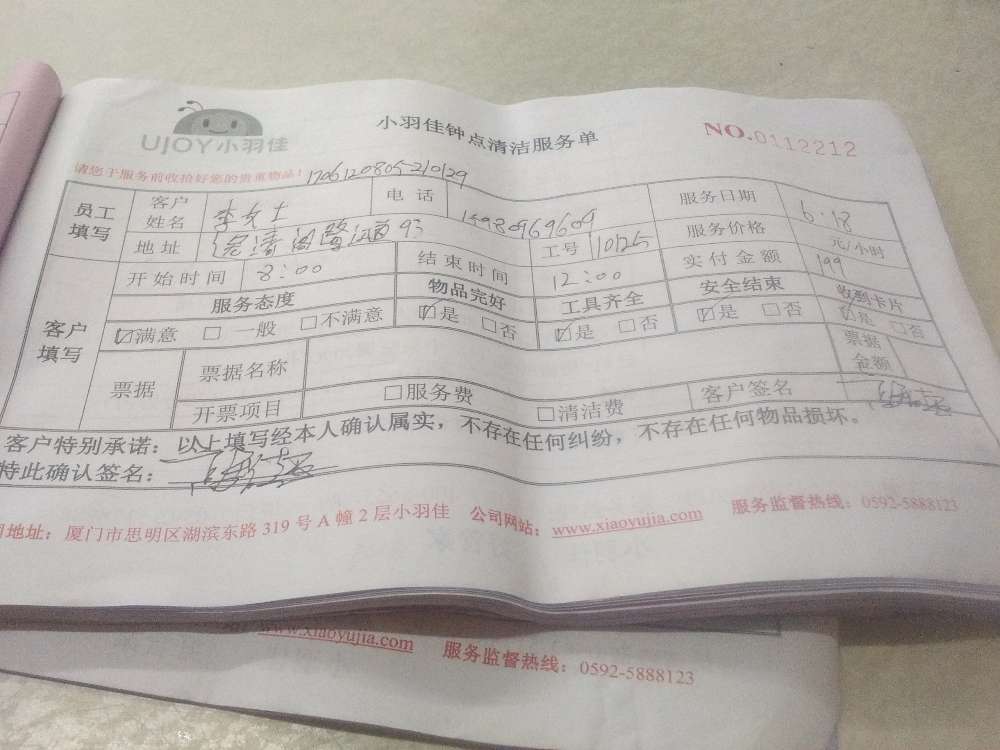 UJOY小羽佳
小羽佳钟点清洁服务单
NO.0112212
请您于服务前收拾好您的贵重物品！170612080521029
员工填写 客户姓名 李女士 电话 15980969609 服务日期 6.18
地址 工号 10125 服务价格 元/小时
客户填写 开始时间 8:00 结束时间 12:00 实付金额 199
服务态度 物品完好 工具齐全 安全结束 收到卡片
☑满意 □一般 □不满意 ☑是 □否 ☑是 □否 ☑是 □否 ☑是 □否
票据 票据名称 票据金额
开票项目 □服务费 □清洁费 客户签名
客户特别承诺：以上填写经本人确认属实，不存在任何纠纷，不存在任何物品损坏。
特此确认签名：
地址：厦门市思明区湖滨东路 319 号 A 幢 2 层小羽佳 公司网站：www.xiaoyujia.com 服务监督热线：0592-5888123
www.xiaoyujia.com 服务监督热线：0592-5888123